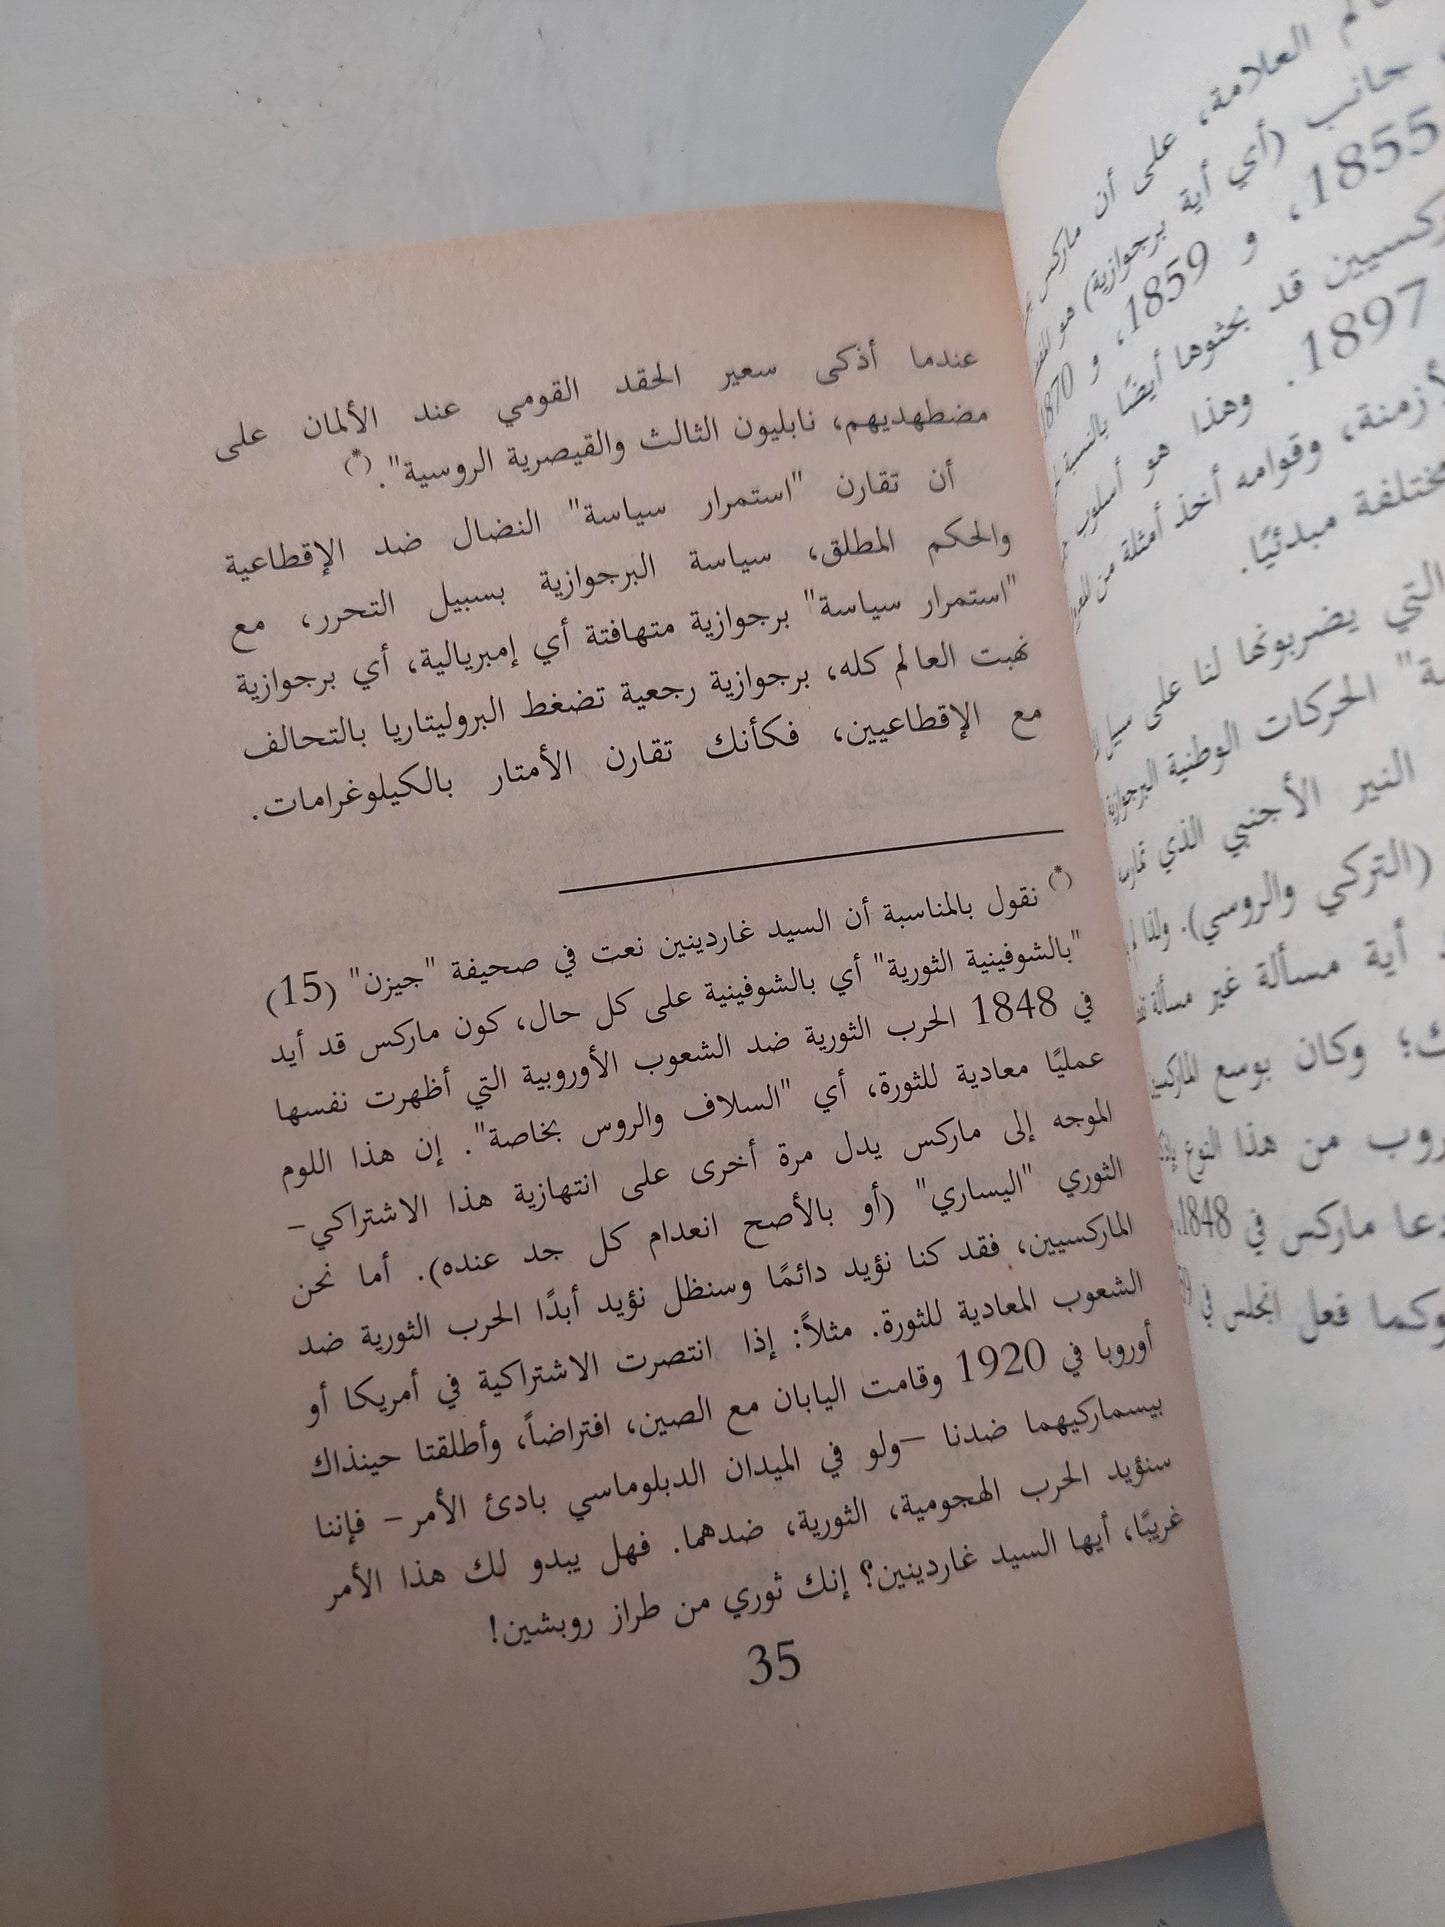 عالم العلامة، على أن ماركس
جانب (أي أية برجوازية) هو المفضل
1855، و 1859، و 1870
الماركسيين قد بحثوها أيضًا بالنسبة
1897. وهذا هو أسلوب
الأزمنة، وقوامه أخذ أمثلة من
مختلفة مبدئيًا.
التي يضربونها لنا على سبيل
الحركات الوطنية البرجوازية
النير الأجنبي الذي تمارسه
(التركي والروسي). ولذا
أية مسألة غير مسألة
وكان بوسع
من هذا النوع
دعا ماركس في 1848،
وكما فعل انجلس في
عندما أذكى سعير الحقد القومي عند الألمان على
مضطهديهم، نابليون الثالث والقيصرية الروسية". (*)
أن تقارن "استمرار سياسة" النضال ضد الإقطاعية
والحكم المطلق، سياسة البرجوازية بسبيل التحرر، مع
"استمرار سياسة" برجوازية متهافتة أي إمبريالية، أي برجوازية
نهبت العالم كله، برجوازية رجعية تضغط البروليتاريا بالتحالف
مع الإقطاعيين، فكأنك تقارن الأمتار بالكيلوغرامات.
(*) نقول بالمناسبة أن السيد غاردينين نعت في صحيفة "جيزن" (15)
"بالشوفينية الثورية" أي بالشوفينية على كل حال، كون ماركس قد أيد
في 1848 الحرب الثورية ضد الشعوب الأوروبية التي أظهرت نفسها
عمليًا معادية للثورة، أي "السلاف والروس بخاصة". إن هذا اللوم
الموجه إلى ماركس يدل مرة أخرى على انتهازية هذا الاشتراكي-
الثوري "اليساري" (أو بالأصح انعدام كل جد عنده). أما نحن
الماركسيين، فقد كنا نؤيد دائمًا وسنظل نؤيد أبدًا الحرب الثورية ضد
الشعوب المعادية للثورة. مثلاً: إذا انتصرت الاشتراكية في أمريكا أو
أوروبا في 1920 وقامت اليابان مع الصين، افتراضاً، وأطلقتا حينذاك
بيسماركيهما ضدنا –ولو في الميدان الدبلوماسي بادئ الأمر- فإننا
سنؤيد الحرب الهجومية، الثورية، ضدهما. فهل يبدو لك هذا الأمر
غريبًا، أيها السيد غاردينين؟ إنك ثوري من طراز روبشين!
35